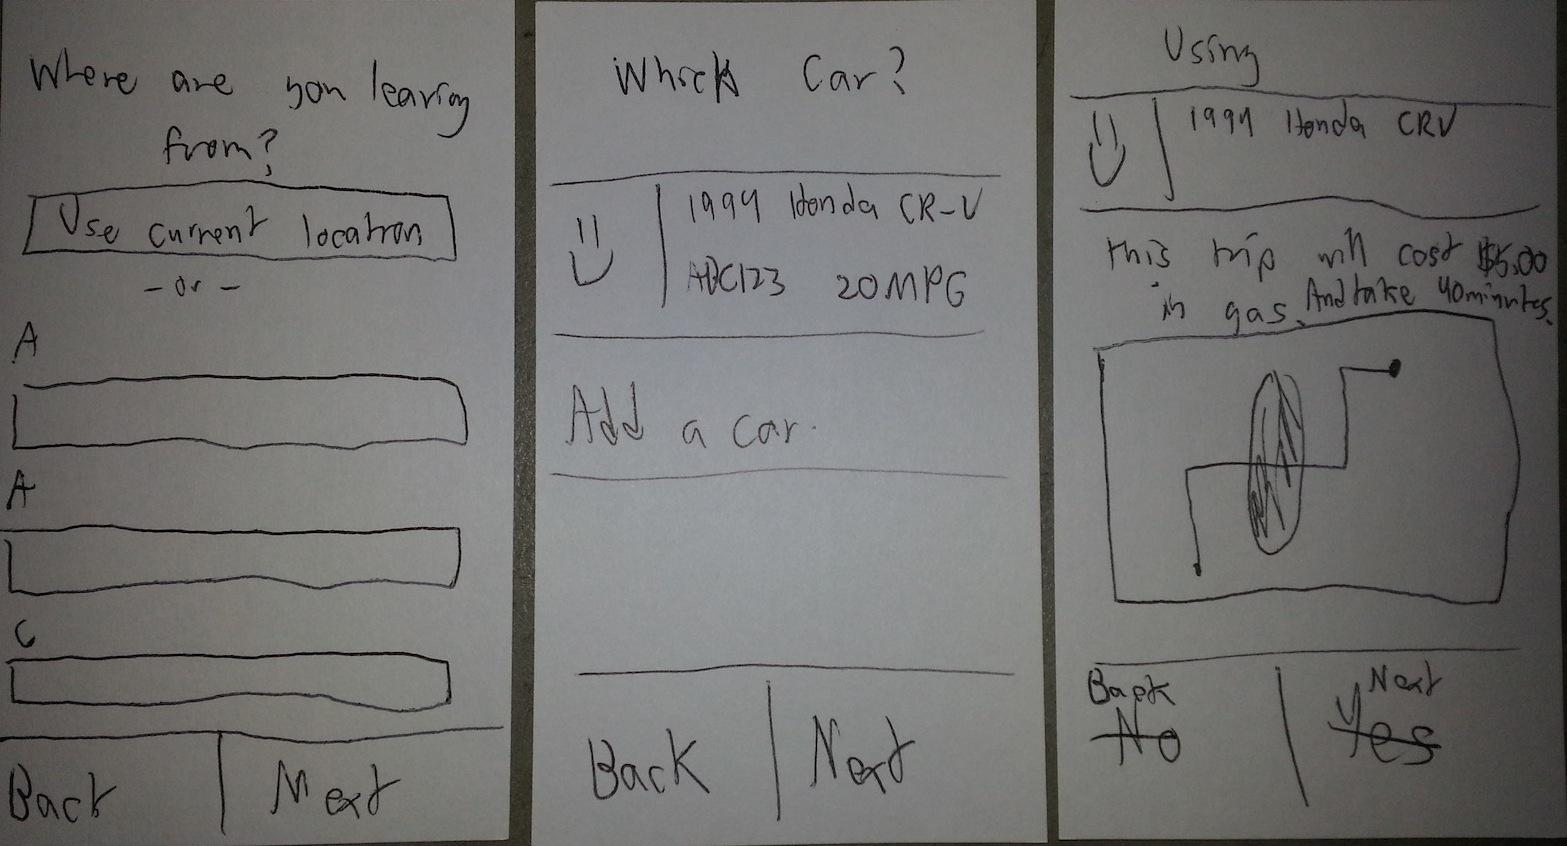 Where are you leaving
from?
Use current location
- or -
A
A
C
Back
Next
Which Car?
1994 Honda CR-V
ABC123 20MPG
Add a car.
Back
Next
Using
1994 Honda CRV
This trip will cost $5.00
in gas. And take 40 minutes.
Back
No
Next
Yes